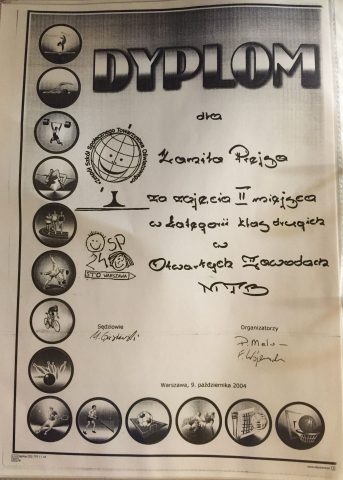 DYPLOM
dla
Kamila
za zajęcie II miejsca
w kategorii klas drugich
w
Otwartych Zawodach
MTB
Szkół Społecznego Towarzystwa Oświatowego
SP
24
STO WARSZAWA
Sędziowie
Organizatorzy
Warszawa, 9. października 2004